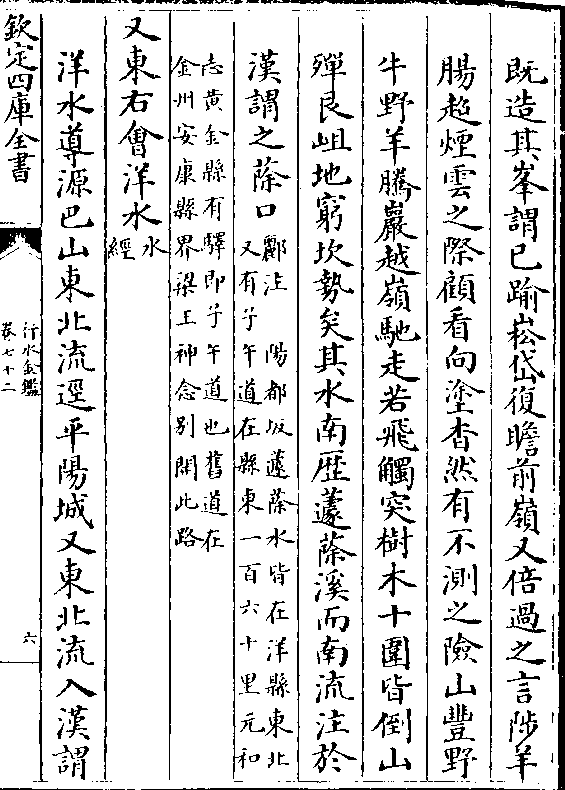 既造其峯謂已踰崧岱復瞻前嶺又倍過之言陟羊
腸超煙雲之際顧看向塗杳然有不測之險山豐野
牛野羊騰巖越嶺馳走若飛觸突樹木十圍皆倒山
殫艮岨地窮坎勢矣其水南歷蘧蒢溪而南流注於
漢謂之蒢口
酈注　陽都坂蘧蒢水皆在洋縣東北
又有子午道在縣東一百六十里元和
志黃金縣有驛即子午道也舊道在
金州安康縣界梁王神念别開此路
又東右會洋水
水
經
洋水導源巴山東北流逕平陽城又東北流入漢謂
欽定四庫全書
行水金鑑
卷七十二
六